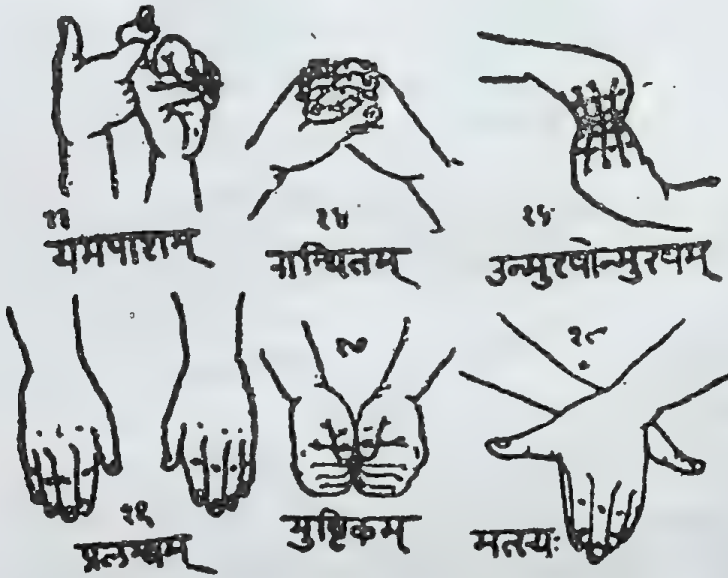 १३
यमपाशम्
१४
ग्रन्थितम्
१५
उन्मुखोन्मुखम्
१६
प्रलम्बम्
१७
मुष्टिकम्
१८